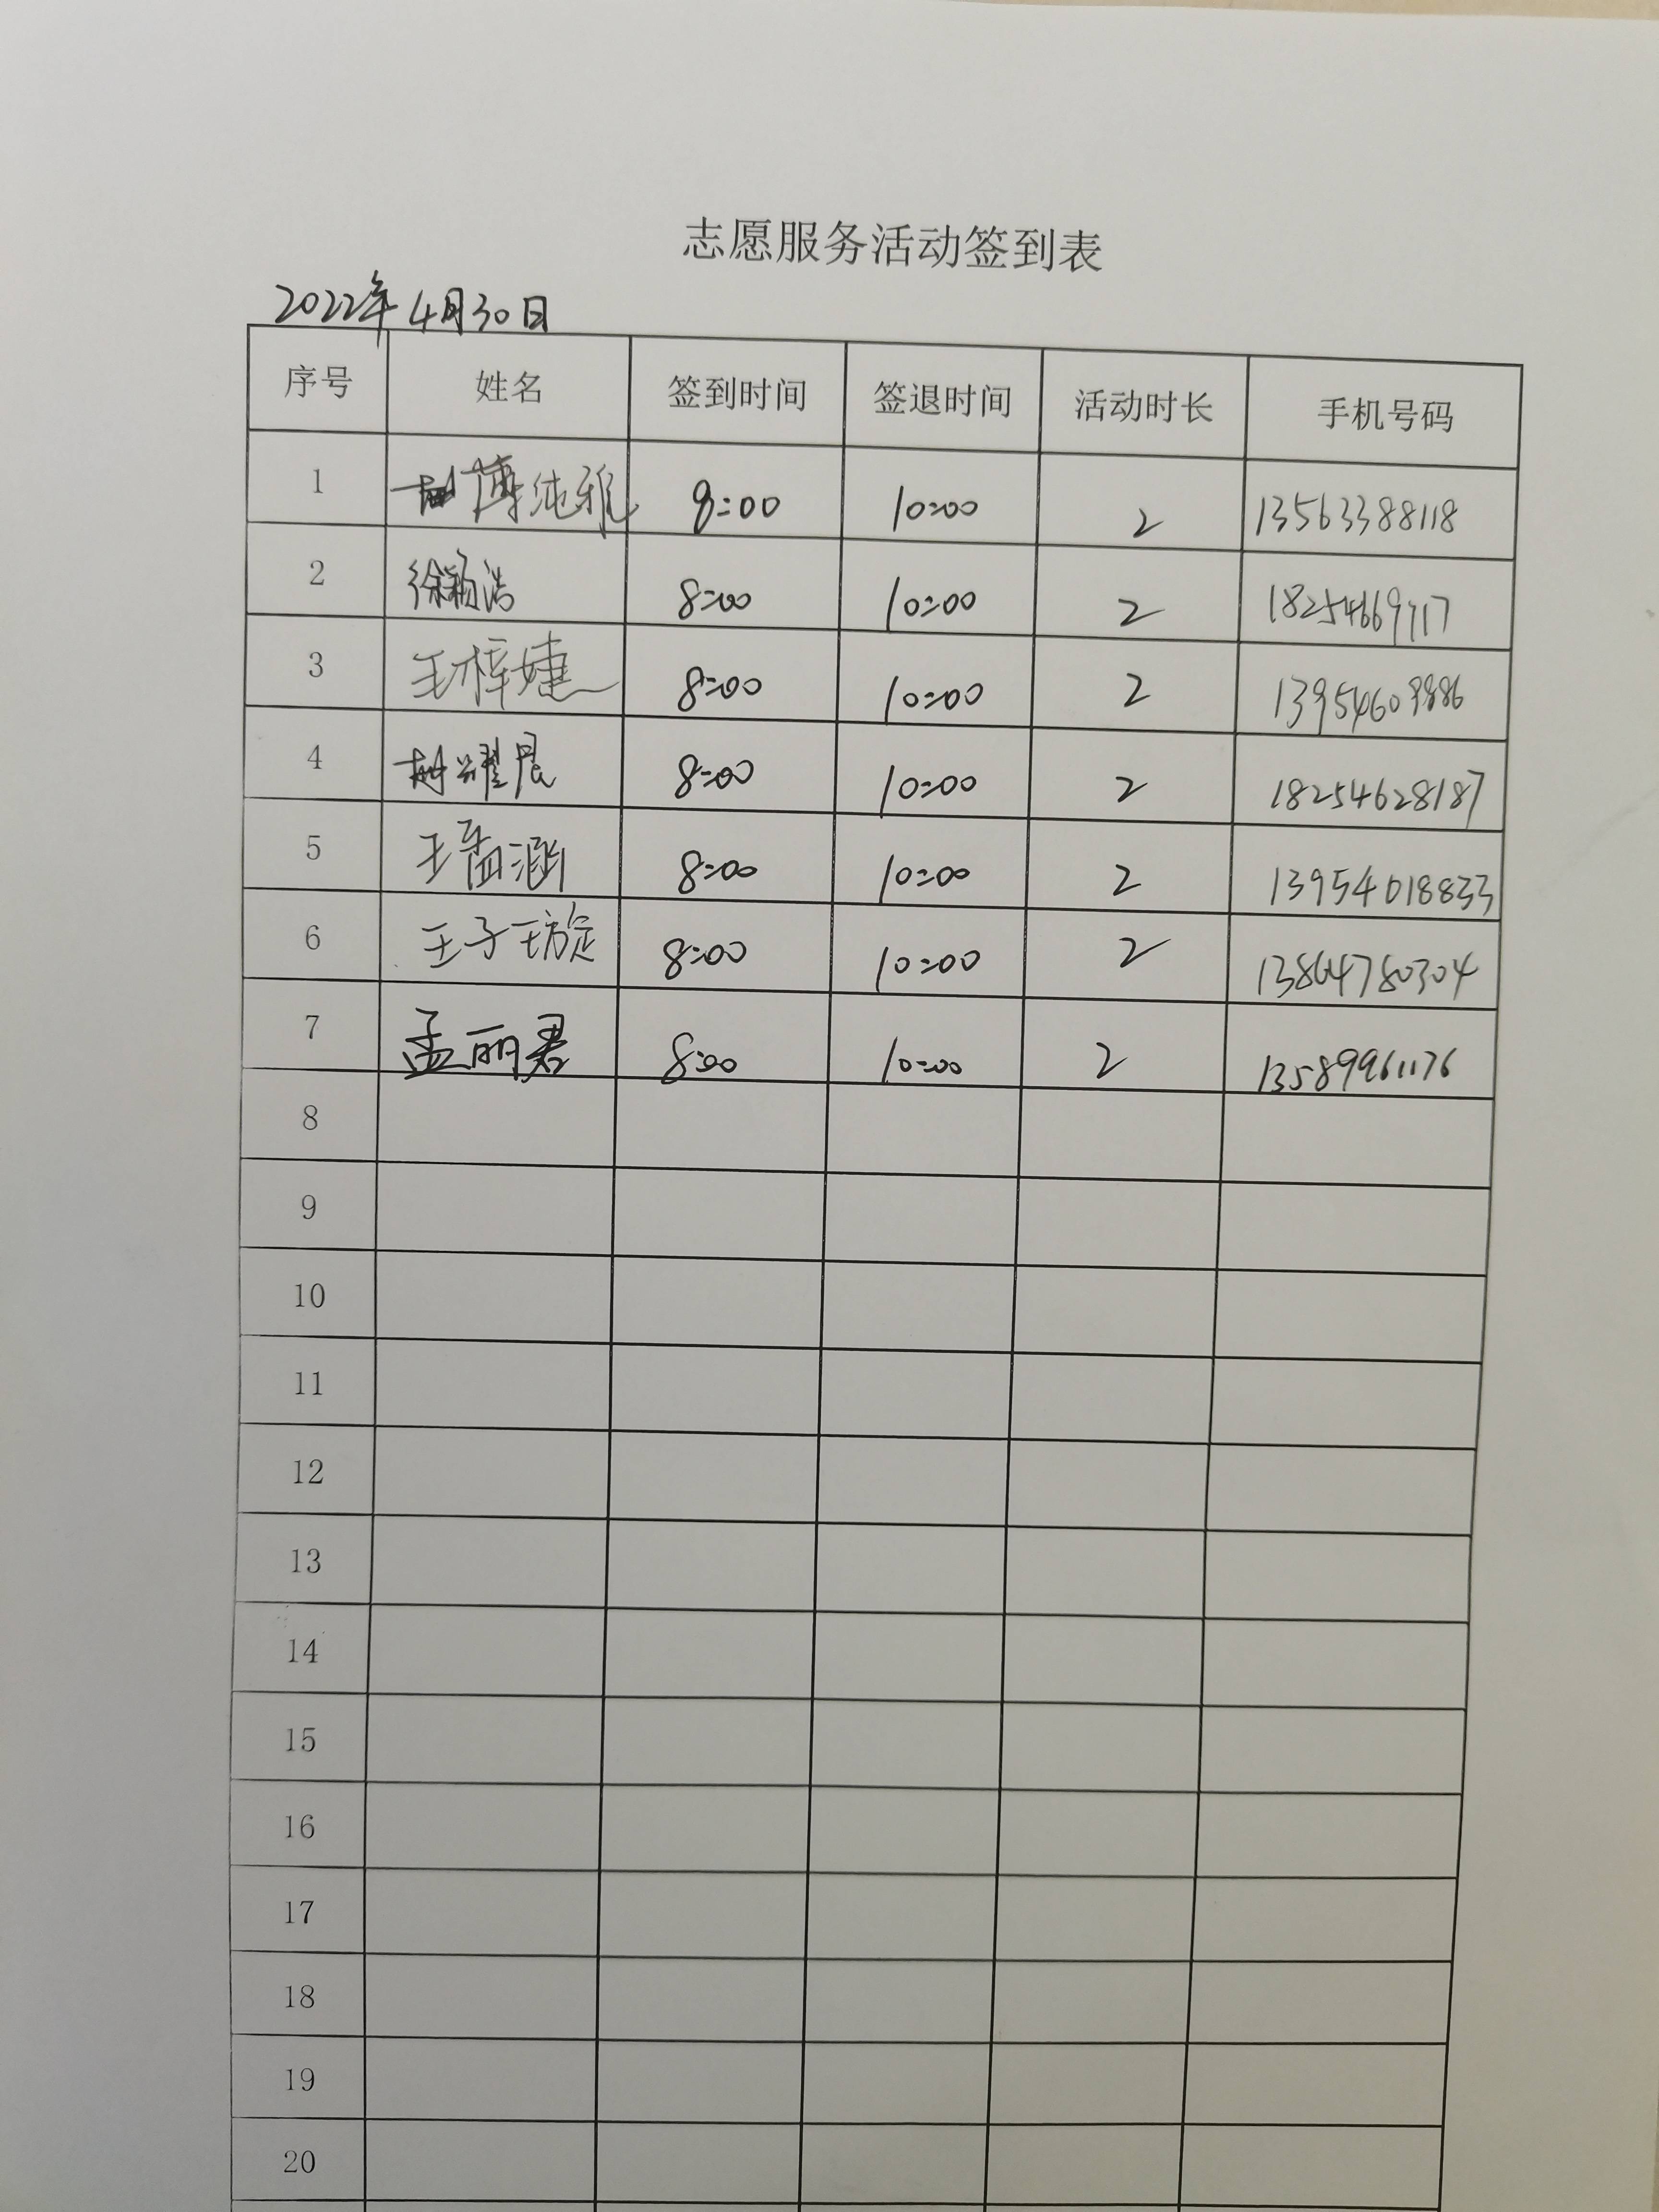 志愿服务活动签到表
2022年4月30日
序号 姓名 签到时间 签退时间 活动时长 手机号码
1 薄纯雅 8:00 10:00 2 13563388118
2 徐颖浩 8:00 10:00 2 18254669717
3 王梓婕 8:00 10:00 2
4 耀晨 8:00 10:00 2 18254628187
5 王孟涵 8:00 10:00 2 13954018833
6 王子琁 8:00 10:00 2 13864780304
7 孟丽君 8:00 10:00 2 13589961176
8
9
10
11
12
13
14
15
16
17
18
19
20